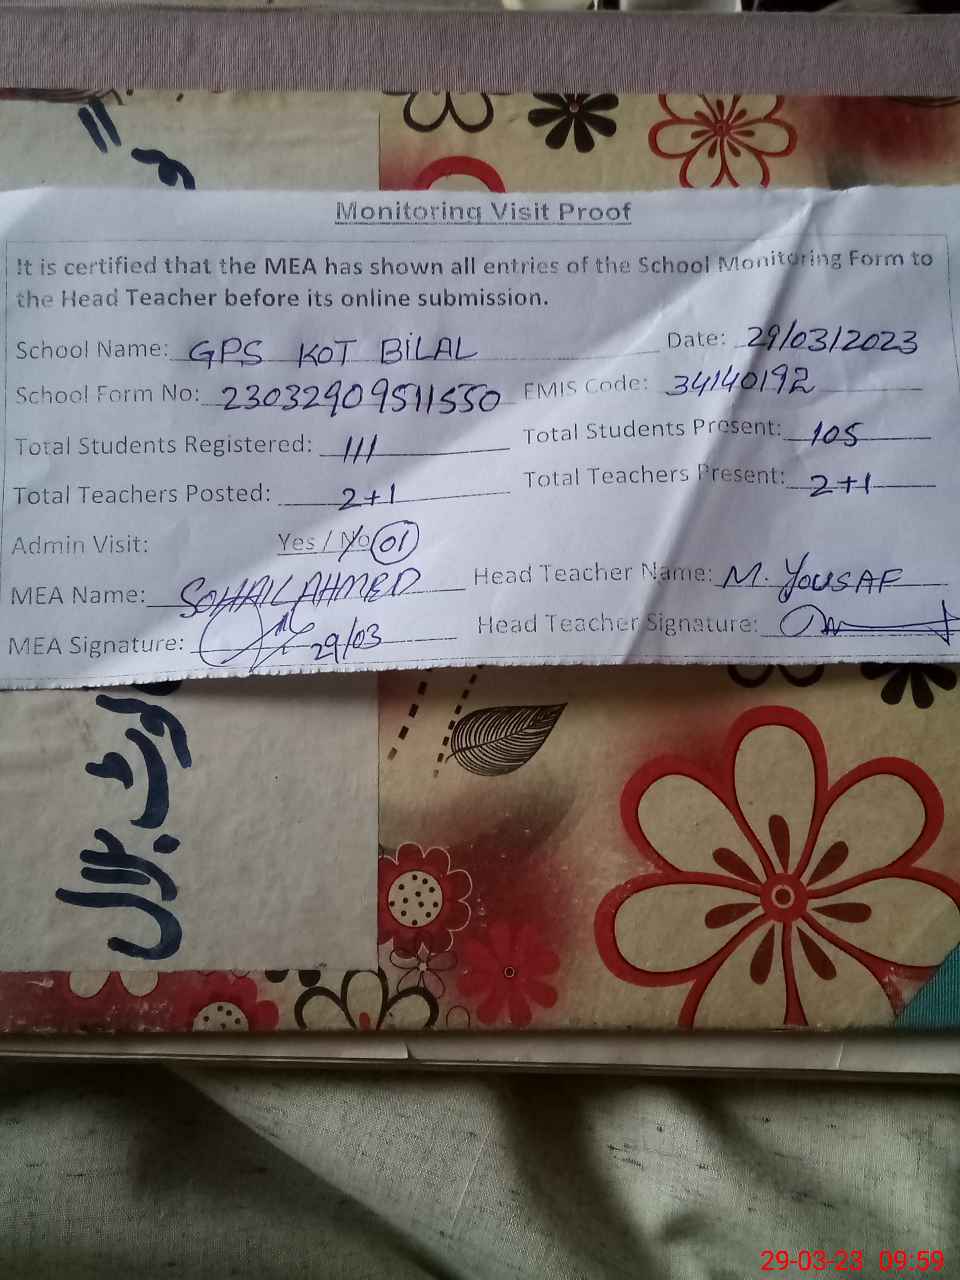 Monitoring Visit Proof
It is certified that the MEA has shown all entries of the School Monitoring Form to
the Head Teacher before its online submission.
School Name: GPS KOT BILAL Date: 29/03/2023
School Form No: 23032909511550 EMIS Code: 34140192
Total Students Registered: 111 Total Students Present: 105
Total Teachers Posted: 2+1 Total Teachers Present: 2+1
Admin Visit: Yes / No 01
MEA Name: SOHAIL AHMED Head Teacher Name: M. YOUSAF
MEA Signature: 29/03 Head Teacher Signature:
کوٹ بلال
29-03-23 09:59